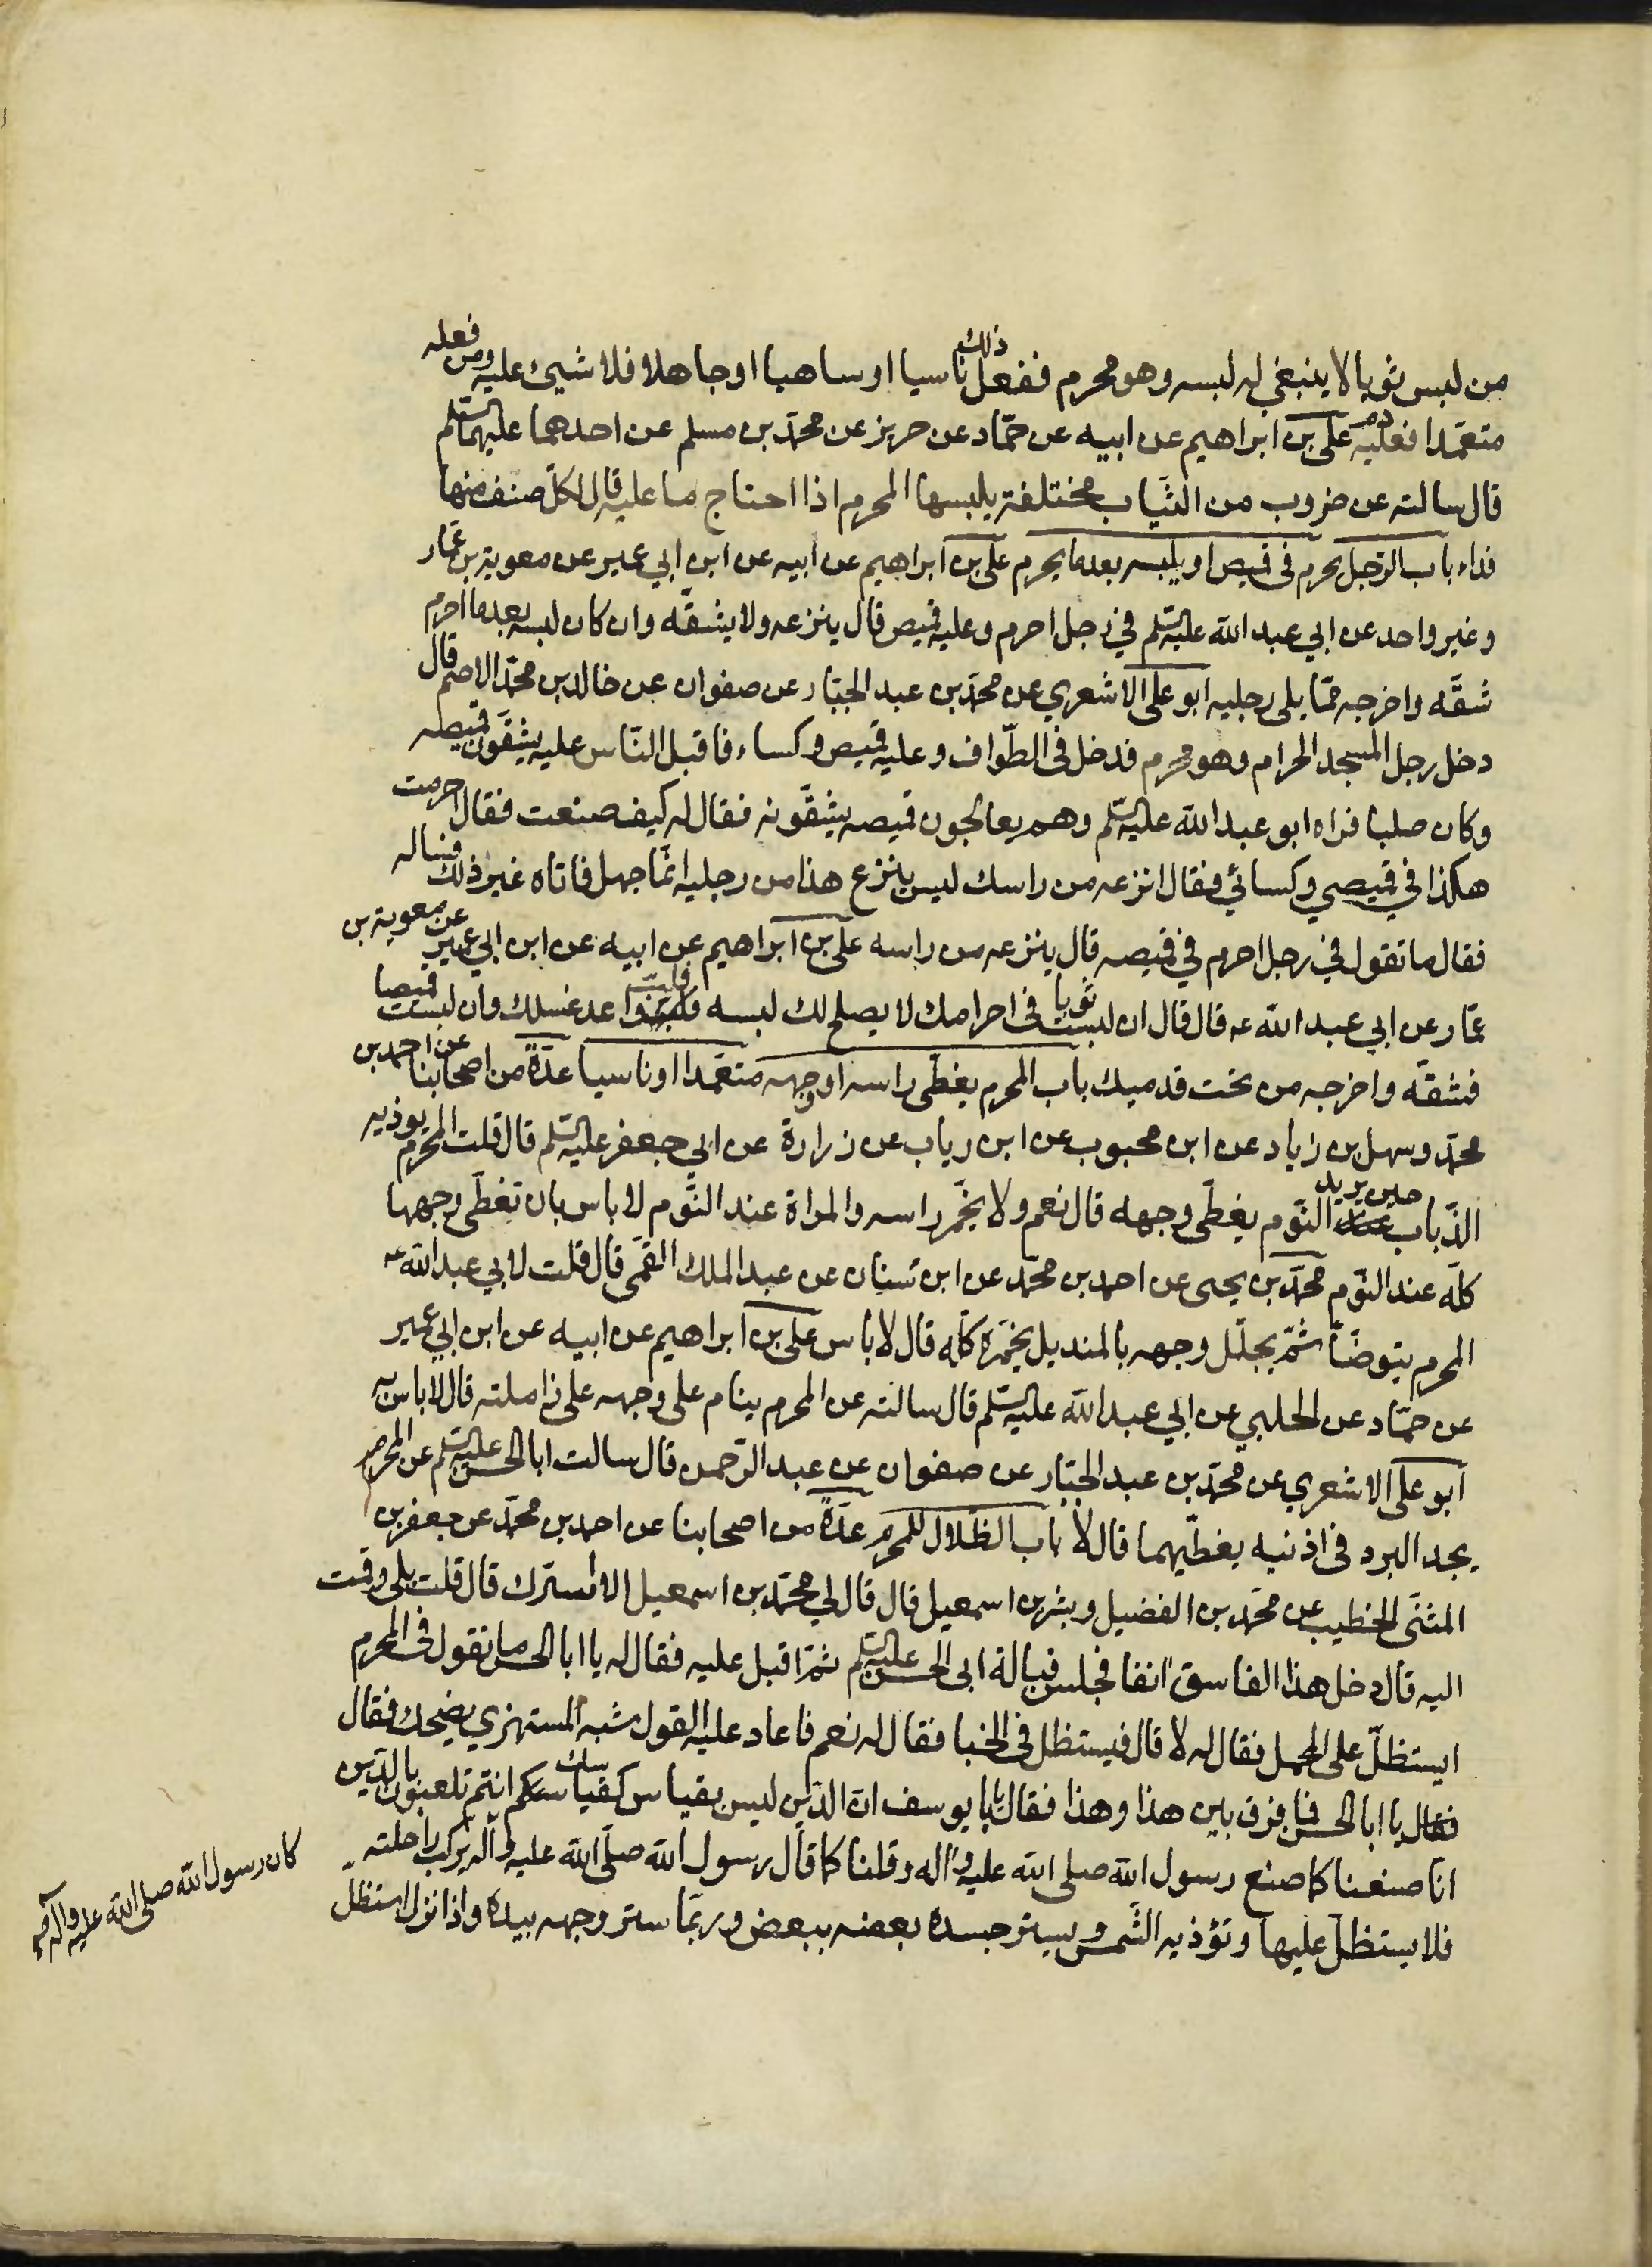 من لبس ثوبا لا ينبغي له لبسه وهو محرم ففعل ذلك ناسيا او ساهيا او جاهلا فلا شيئ عليه ومن فعله
متعمّدا فعليه دم علي بن ابراهيم عن ابيه عن حمّاد عن حريز عن محمّد بن مسلم عن احدهما عليهما السّلم
قال سالته عن ضروب من الثّياب مختلفة يلبسها المحرم اذا احتاج ما عليه قال لكلّ صنف منها
فداء باب الرّجل يحرم فى قميص او يلبسه بعد ما يحرم علي بن ابراهيم عن ابيه عن ابن ابي عمير عن معوية بن عمّار
وغير واحد عن ابي عبد الله عليه السّلم في رجل احرم وعليه قميص قال ينزعه ولا يشقّه وان كان لبسه بعد ما احرم
شقّه واخرجه ممّا يلى رجليه ابو على الاشعري عن محمّد بن عبد الجبّار عن صفوان عن خالد بن محمّد الاصم قال
دخل رجل المسجد الحرام وهو محرم فدخل فى الطّواف وعليه قميص وكساء فاقبل النّاس عليه يشقّون قميصه
وكان صلبا فراه ابو عبد الله عليه السّلم وهم يعالجون قميصه يشقّونه فقال له كيف صنعت فقال احرمت
هكذا في قميصي وكسائي فقال انزعه من راسك ليس ينزع هذا من رجليه انّما جهل فاتاه غير ذلك فساله
فقال ما تقول في رجل احرم في قميصه قال ينزعه من راسه علي بن ابراهيم عن ابيه عن ابن ابي عمير عن معوية بن
عمّار عن ابي عبد الله عه قال قال ان لبست ثوبا فى احرامك لا يصلح لك لبسه فلبّ واعد غسلك وان لبست قميصا
فشقّه واخرجه من تحت قدميك باب المحرم يغطّى راسه او وجهه متعمّدا او ناسيا عدّة من اصحابنا عن احمد بن
محمّد وسهل بن زياد عن ابن محبوب عن ابن رياب عن زرارة عن ابي جعفر عليه السّلم قال قلت المحرم يوذيه
الذّباب حين يريد النّوم يغطّى وجهه قال نعم ولا يخمّر راسه والمراة عند النّوم لا باس بان تغطّى وجهها
كلّه عند النّوم محمّد بن يحيى عن احمد بن محمّد عن ابن سنان عن عبد الملك القمّى قال قلت لابي عبد الله عه
المحرم يتوضّا ثمّ يجلّل وجهه بالمنديل يخمّره كلّه قال لا باس علي بن ابراهيم عن ابيه عن ابن ابي عمير
عن حمّاد عن الحلبي عن ابي عبد الله عليه السّلم قال سالته عن المحرم ينام على وجهه على زاملته قال لا باس به
ابو على الاشعري عن محمّد بن عبد الجبّار عن صفوان عن عبد الرّحمن قال سالت ابا الحسن عليه السّلم عن المحرم
يجد البرد فى اذنيه يغطّيهما قال لا باب الظّلال للمحرم عدّة من اصحابنا عن احمد بن محمّد عن جعفر بن
المثنّى الخطيب عن محمّد بن الفضيل وبشر بن اسمعيل قال قال لي محمّد بن اسمعيل الا اسرّك قال قلت بلى وقمت
اليه قال دخل هذا الفاسق انفا فجلس قبالة ابى الحسن عليه السّلم ثمّ اقبل عليه فقال له يا ابا الحسن ما تقول فى المحرم
ايستظلّ على المحمل فقال له لا قال فيستظل فى الخبا فقال له نعم فاعاد عليه القول شبه المستهزي يضحك فقال
يا ابا الحسن فما فرق بين هذا وهذا فقال يابا يوسف انّ الدّين ليس بقياس كقياسك انتم تلعبون بالدّين
انّا صنعنا كما صنع رسول الله صلى الله عليه واله وقلنا كما قال رسول الله صلّى الله عليه وآله يركب راحلته
فلا يستظلّ عليها وتؤذيه الشّمس ويستر جسده بعضه ببعض وربّما ستر وجهه بيده واذا نزل استظلّ
كان رسول الله صلى الله عليه وآله